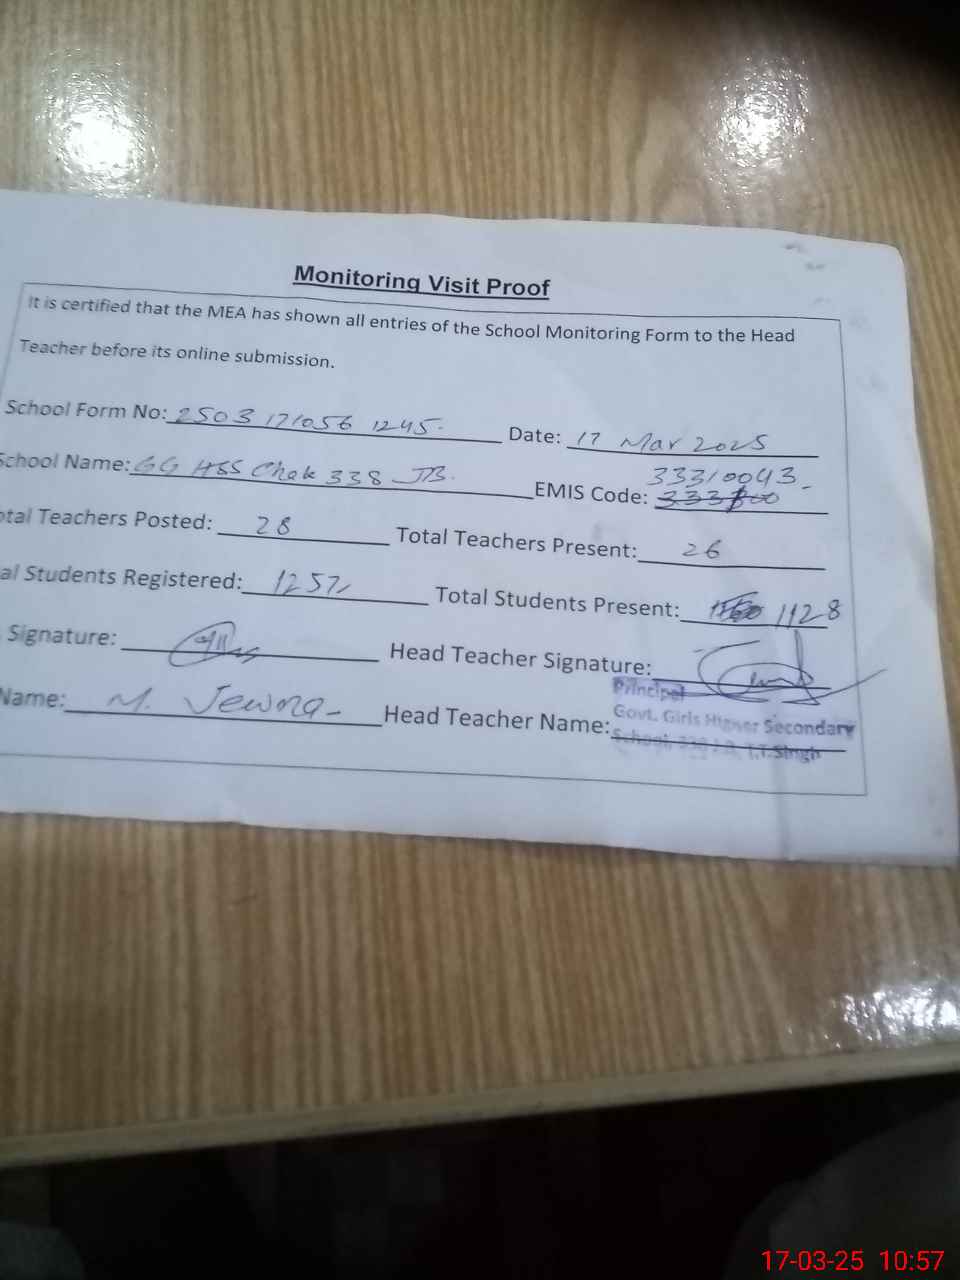 Monitoring Visit Proof
It is certified that the MEA has shown all entries of the School Monitoring Form to the Head
Teacher before its online submission.
School Form No: 2503 171056 1245. Date: 17 Mar 2025
School Name: GG HSS Chak 338 JB. EMIS Code: 33310043
otal Teachers Posted: 28 Total Teachers Present: 26
al Students Registered: Total Students Present: 1128
Signature: Head Teacher Signature:
Name: M. Head Teacher Name:
Principal
Govt. Girls Higher Secondary
School, J.B, T.T.Singh
17-03-25 10:57